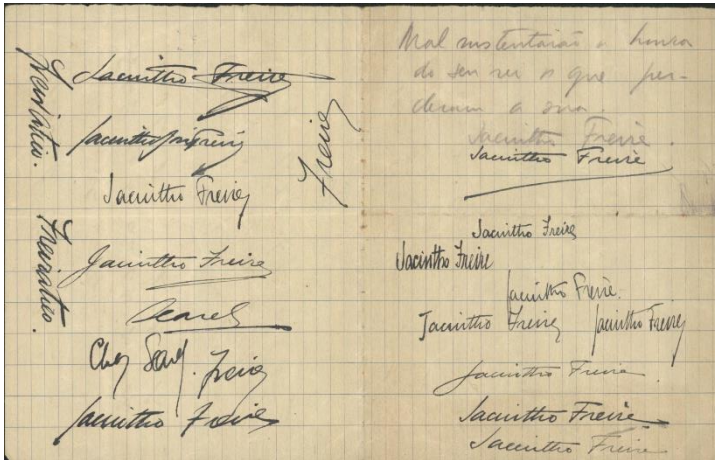 Jacintho Freire
Jacintho Freire
Jacintho Freire
Freire
Jacintho Freire
Chas Search. Freire
Jacintho Freire
Mal sustentarão a honra
do seu rei os que per-
deram a sua.
Jacintho Freire.
Jacintho Freire
Jacintho Freire
Jacintho Freire
Jacintho Freire.
Jacintho Freire
Jacintho Freire
Jacintho Freire.
Jacintho Freire.
Jacintho Freire